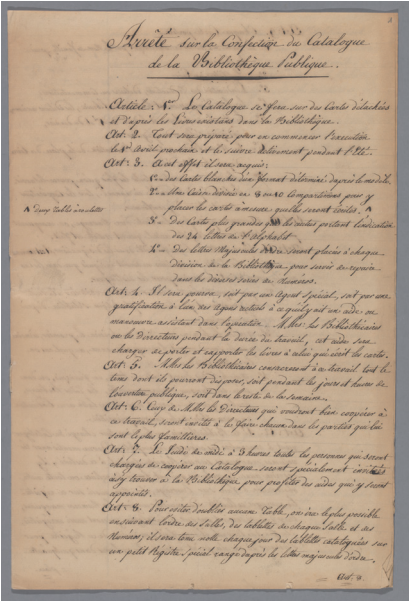 Arrêté sur la Confection du Catalogue
de la Bibliothèque Publique.
Article 1er. Le Catalogue se fera sur des Cartes détachées
et d'après les Livres existans dans la Bibliothèque.
Art. 2. Tout sera préparé pour en commencer l'exécution
le 1er Avril prochain et le suivre activement pendant l'Eté.
Art. 3. A cet effet il sera acquis:
1º des Cartes blanches d'un format déterminé d'après le modèle.
2º Une Caisse divisée en 8 ou 10 Compartimens pour y
placer les cartes à mesure qu'elles seront écrites. A
A deux tables
3º des Cartes plus grandes que les écrites portant l'indication
des 24 lettres de l'Alphabet.
4º des lettres Majuscules seront placées à chaque
division de la Bibliothèque, pour servir de repaire
dans les diverses séries de Numéros.
Art. 4. Il sera pourvu, soit par un Agent spécial, soit par une
gratification à l'un des Agens actuels à ce qu'il y ait un aide ou
manoeuvre assistant dans l'opération. MMrs les Bibliothécaires
ou les Directeurs pendant la durée du travail, cet aide sera
chargé de porter et rapporter les livres à celui qui écrit les cartes.
Art. 5. MMrs les Bibliothécaires consacreront à ce travail tout le
tems dont ils pourront disposer, soit pendant les jours et heures de
l'ouverture publique, soit dans le reste de la semaine.
Art. 6. Ceux de MMrs les Directeurs qui voudront bien coopérer à
ce travail, seront invités à le faire chacun dans les parties qui lui
sont le plus familières.
Art. 7. Le Jeudi de midi à 3 heures toutes les personnes qui seront
chargées de coopérer au Catalogue seront spécialement invitées
à s'y trouver à la Bibliothèque pour profiter des aides qui y seront
appointés.
Art. 8. Pour éviter d'oublier aucune Table, on ira le plus possible
en suivant l'ordre des Salles, des tablettes de chaque Salle et des
Numéros; il sera tenu note chaque jour des tablettes cataloguées sur
un petit Registre spécial rangé d'après les lettres majuscules d'ordre.
Art. 9.